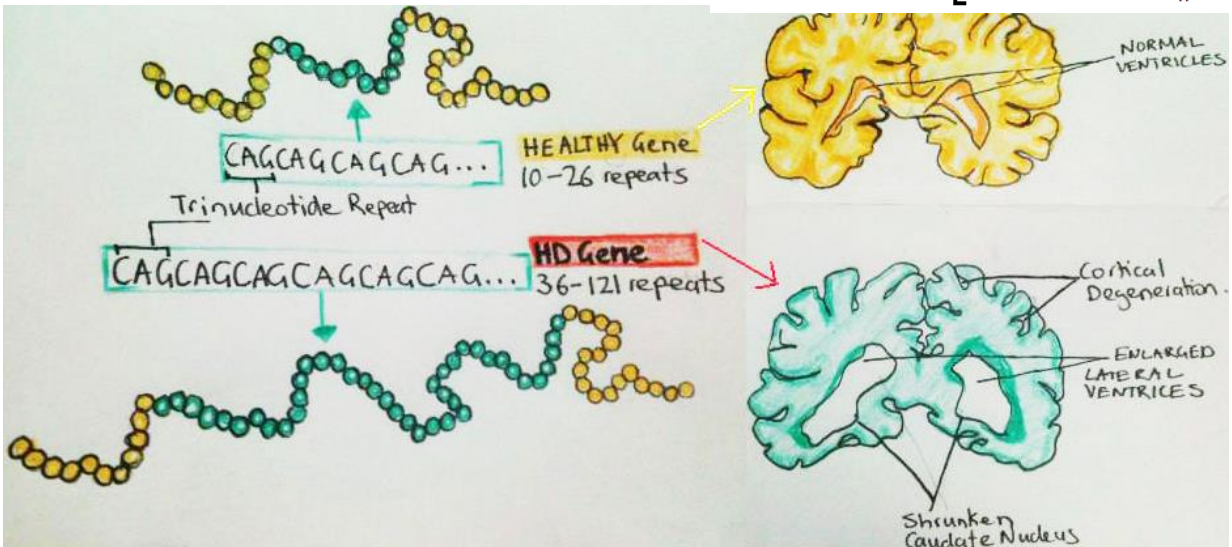 CAGCAGCAGCAG...
HEALTHY Gene
10-26 repeats
Trinucleotide Repeat
CAGCAGCAGCAGCAGCAG...
HD Gene
36-121 repeats
NORMAL
VENTRICLES
Cortical
Degeneration.
ENLARGED
LATERAL
VENTRICES
Shrunken
Caudate Nucleus